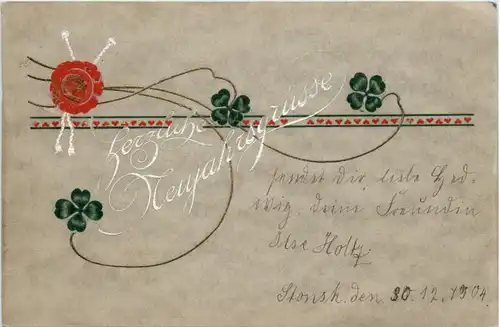 Herzliche
Neujahrsgrüsse
sendet Dir, liebe Hed-
wig, deine Freundin
Ilse Holtz
Stonsh. den 30.12.1904.